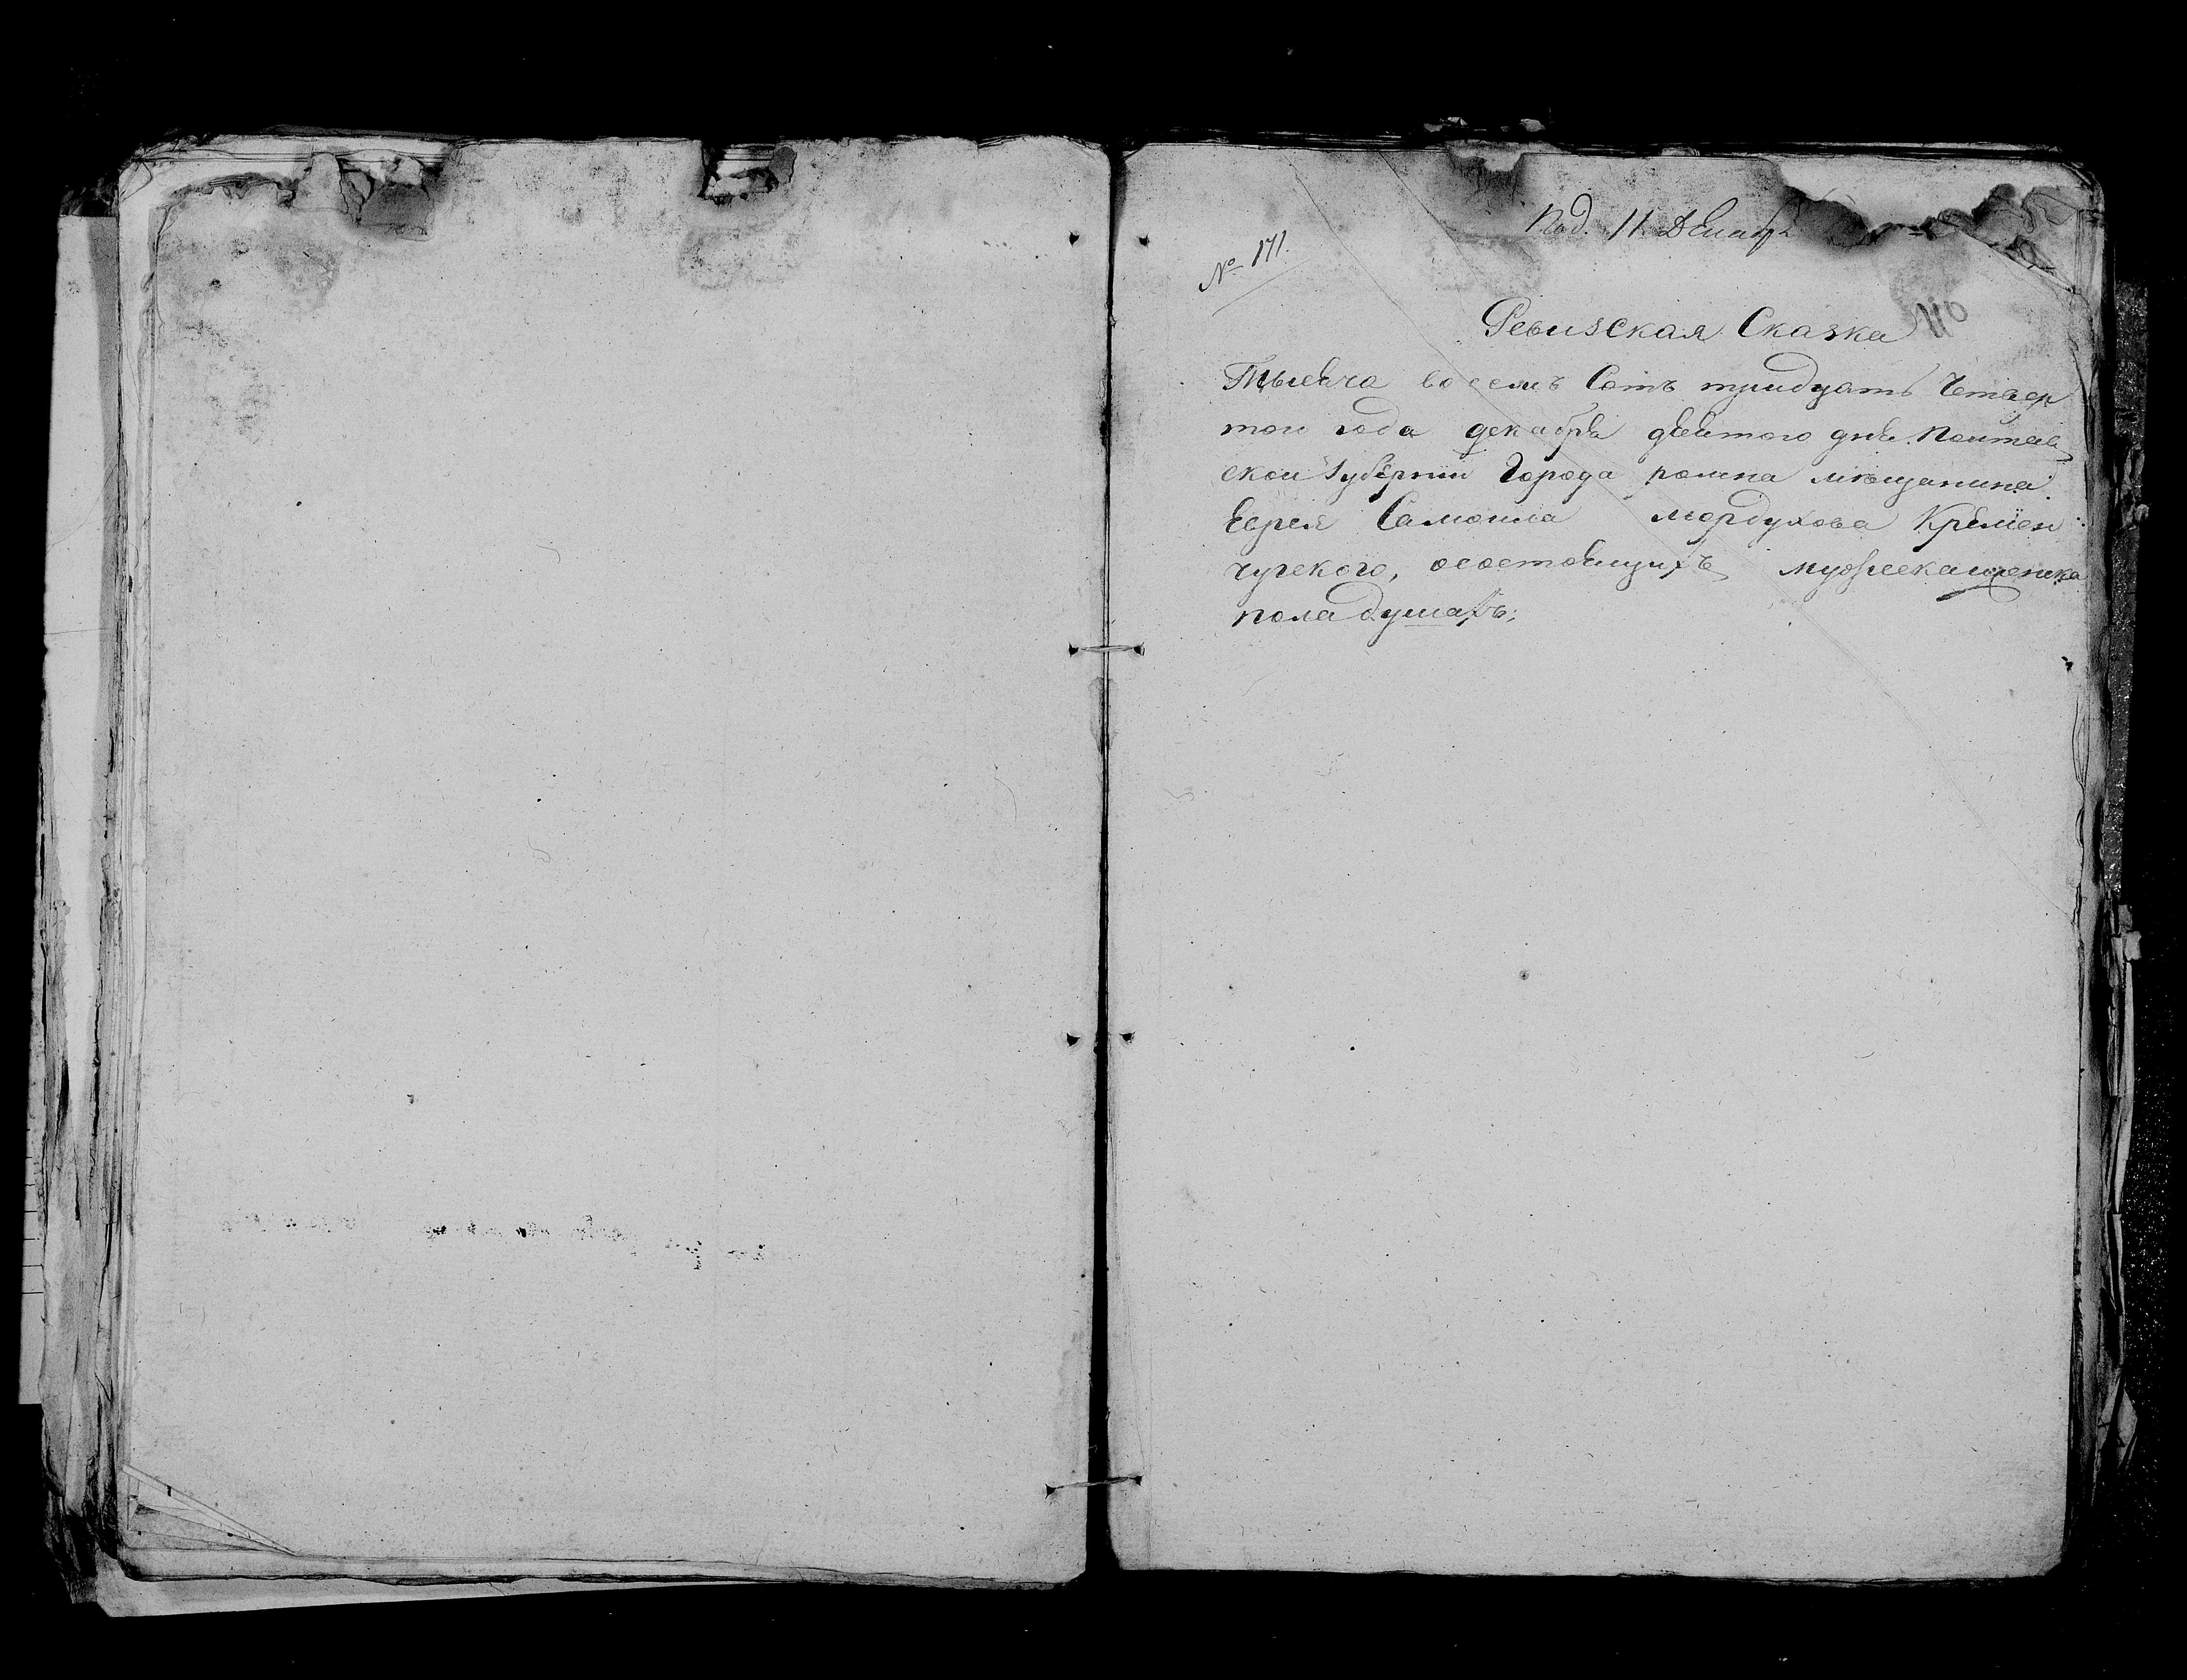 Под. 11 Декабр
№ 171.
110
Ревизская Сказка
Тысеча восемъ Сотъ тридцать Четвер
того года декабря девятого дня. Полтав
ской Губернии Города ромна мѣщанина
Еврея Самоила мордухова Кремен
чугского, осостоящихъ мужескаиженска
пола душахъ;